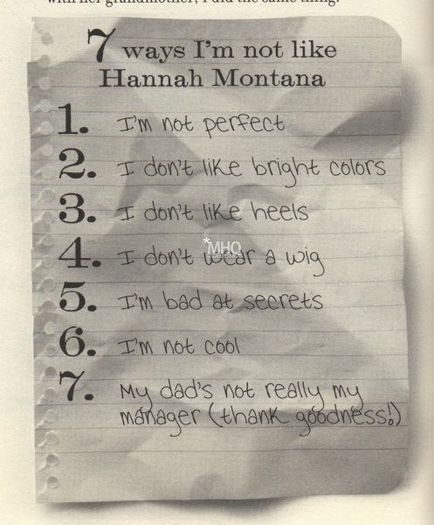 with her grandmother, I did the same thing.
7 ways I'm not like
Hannah Montana
1. I'm not perfect
2. I don't like bright colors
3. I don't like heels
*MHQ
4. I don't wear a wig
5. I'm bad at secrets
6. I'm not cool
7. My dad's not really my
manager (thank goodness!)